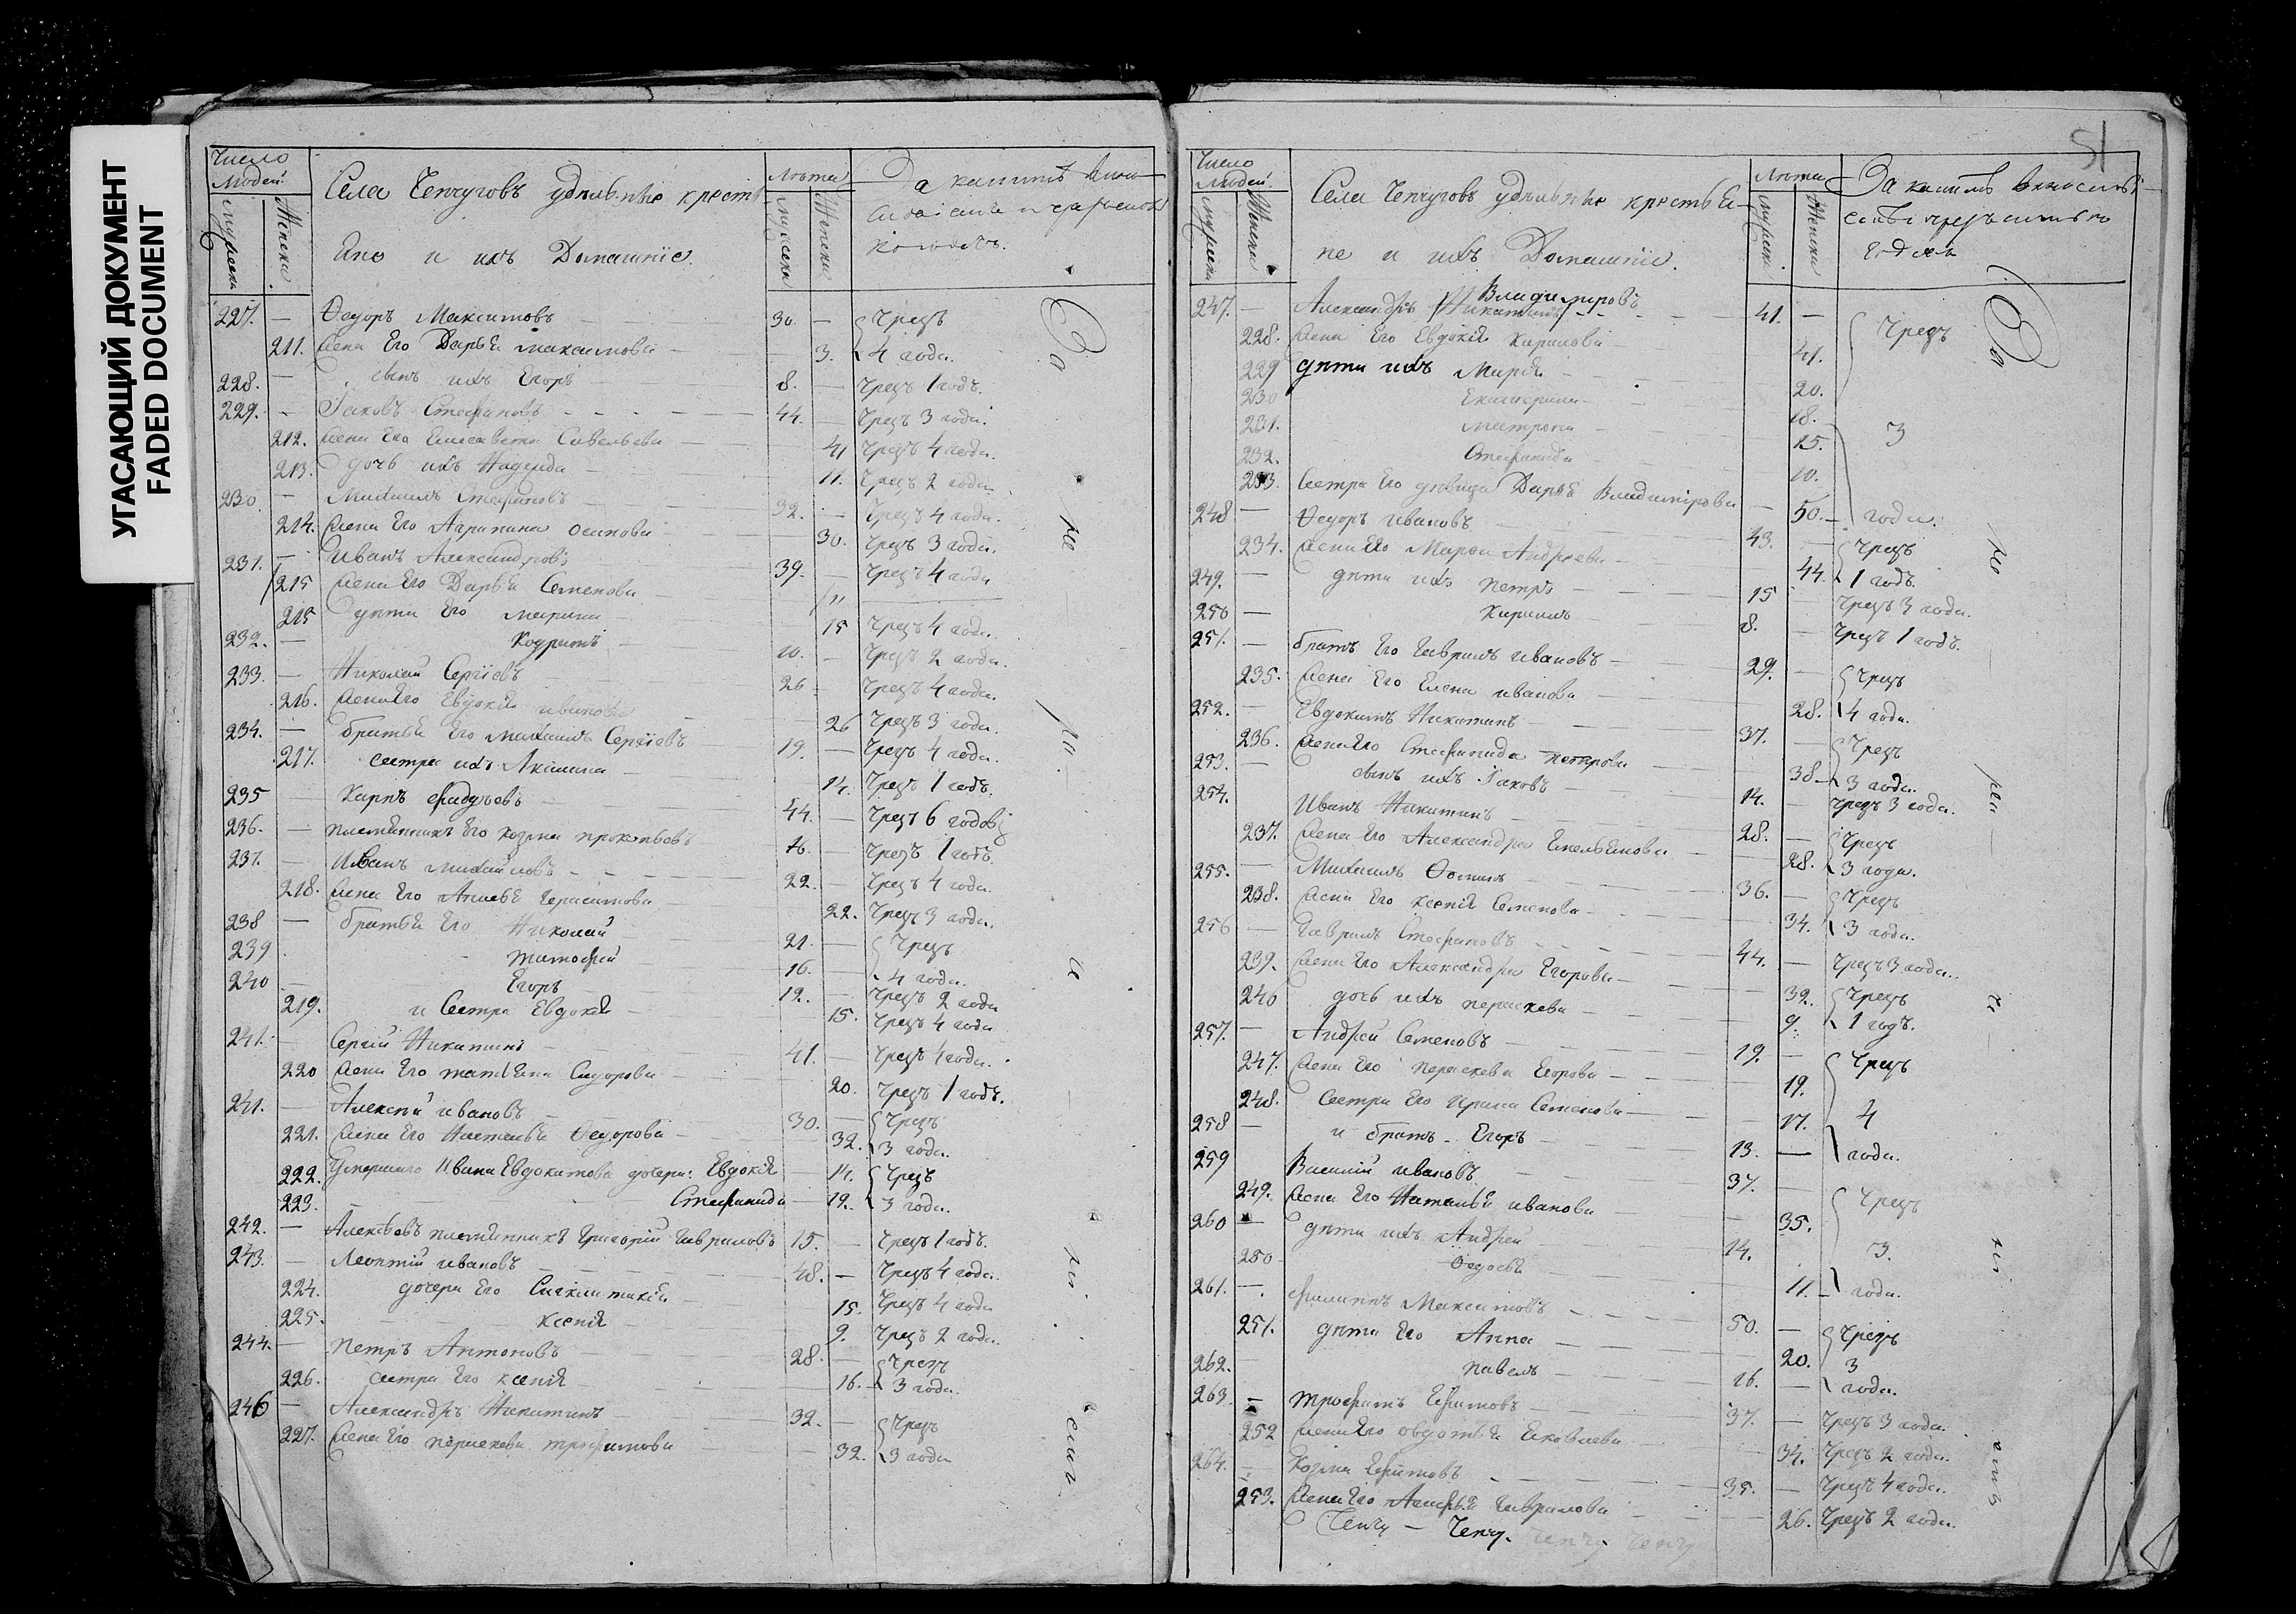 УГАСАЮЩИЙ ДОКУМЕНТ
FADED DOCUMENT
Число людей
мужеска
женска
Села Чепчуговъ удѣльные крестья
не и ихъ Домашніе.
лѣта
мужеска
женска
За какимъ
227. — Ѳедоръ Максимовъ 30. — Чрезъ
211. Жена Его Дарья Максимова — 3. 4 года.
228. — сынъ ихъ Егоръ 8. — Чрезъ 1 годъ.
229. — Іаковъ Стефановъ 44. — Чрезъ 3 года.
212. Жена Его Елисавета Савельева — 41 Чрезъ 4 года.
213. дочь ихъ Надежда — 11. Чрезъ 2 года.
230. — Михаилъ Стефановъ 32. — Чрезъ 4 года.
214. Жена Его Агрипина Осипова — 30. Чрезъ 3 года.
231. — Иванъ Александровъ 39. — Чрезъ 4 года
215 Жена Его Дарья Семенова — "
215 дѣти Его Марина — 15 Чрезъ 4 года.
232. — Кодратъ 10. — Чрезъ 2 года.
233. — Николай Сергіевъ 26. Чрезъ 4 года.
216. Жена Его Евдокія Иванова 26 Чрезъ 3 года.
234. — братья Его Михаилъ Сергіевъ 19. — Чрезъ 4 года.
217. сестра ихъ Акилина — 14. Чрезъ 1 годъ.
235 Карпъ 44. — Чрезъ 6 годовъ
236. — племянникъ Его Козма Прокофьевъ 16. — Чрезъ 1 годъ.
237. — Иванъ Михайловъ 22. — Чрезъ 4 года.
218. Жена Его Анисья Герасимова — 22. Чрезъ 3 года.
238 — братья Его Николай 21. — Чрезъ
239 Тимофей 16. — 4 года.
240 — Егоръ 12. — Чрезъ 2 года
219. и Сестра Евдокія — 15. Чрезъ 4 года
241. — Сергій Никитинъ — 41. — Чрезъ 4 года.
220 Жена Его Татіана Сидорова 20. Чрезъ 1 годъ.
241. — Алексій Ивановъ 30. — Чрезъ
221. Жена Его Наталья Ѳедорова — 32. 3 года.
222. Умершаго Ивана Евдокимова дочери: Евдокія — 14. Чрезъ
223. Стефанида — 19. 3 года.
242. — Алексѣевъ племянникъ Григорій Гавриловъ 15. — Чрезъ 1 годъ.
243. — Леонтій Ивановъ 48. — Чрезъ 4 года.
224. дочери Его Синклитикія 15. Чрезъ 4 года
225. Ксенія 9. Чрезъ 2 года.
244. — Петръ Антоновъ 28. — Чрезъ
226. сестра Его Ксенія — 16. 3 года.
246 — Александръ Никитинъ 32. — Чрезъ
227. Жена Его Параскева Трофимова — 32. 3 года
51
Число людей
мужеска
женска
Села Чепчуговъ удѣльные крестья-
не и ихъ Домашніе.
лѣта
мужеск.
женска
За какимъ
247. — Александръ Владиміровъ 41. — Чрезъ
228. Жена Его Евдокія Кирилова — 41.
229 дѣти ихъ Марія — 20.
230 Екатерина — 18.
231. Матрона — 15. 3
232. Стефанида 10.
233. Сестра Его дѣвица Дарья Владимірова — 50. — года.
248 — Ѳедоръ Ивановъ 43. — Чрезъ
234. Жена Его Марѳа Андреева — 44. 1 годъ.
249. — дѣти ихъ Петръ 15 Чрезъ 3 года.
250 — Кирилъ 8. — Чрезъ 1 годъ.
251. — братъ Его Гаврилъ Ивановъ — 29. — Чрезъ
235. Жена Его Елена Иванова — 28. 4 года.
252. — Евдокимъ Никитинъ 37. — Чрезъ
236. Жена Его Стефанида Петрова 38 — 3 года.
253. — сынъ ихъ Іаковъ 14. — Чрезъ 3 года.
254. Иванъ Никитинъ 28. — Чрезъ
237. Жена Его Александра Емельянова — 28. 3 года.
255. — Михаилъ Ѳоминъ 36. — Чрезъ
238. Жена Его Ксенія Семенова — 34. 3 года.
256 — Гаврилъ Стефановъ 44. — Чрезъ 3 года.
239. Жена Его Александра Егорова — 32. Чрезъ
240 дочь ихъ Параскева 9. 1 годъ.
257. — Андрей Семеновъ 19. — Чрезъ
247. Жена Его Параскева Егорова — 19.
248. Сестра Его Ирина Семенова — 17. 4
258 — и братъ Егоръ 13. — года.
259 Василій Ивановъ 37. — Чрезъ
249. Жена Его Наталья Иванова 35.
260 — дѣти ихъ Андрей 14. 3.
250 Ѳедосья 11. — года.
261. — Филиппъ Максимовъ 50. — Чрезъ
251. дѣти Его Анна 20. 3
262. — Павелъ 16. — года.
263. — Трофимъ Ефимовъ 37. — Чрезъ 3 года.
252 Жена Его Овдотья Яковлева 34. Чрезъ 2 года.
264. — Козма Ефимовъ 35. — Чрезъ 4 года.
253. Жена Его Агафья Гаврилова — 26. Чрезъ 2 года.
Чепч — Чепч. Чепч Чепч